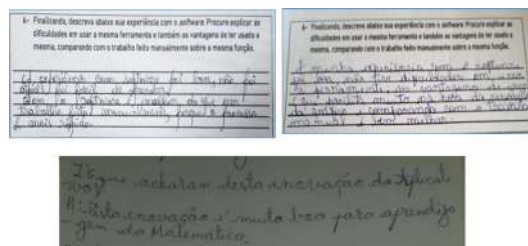 4- Finalizando, descreva abaixo sua experiência com o software. Procure explicar as
dificuldades em usar a mesma ferramenta e também as vantagens de ter usado a
mesma, comparando com o trabalho feito manualmente sobre a mesma função.
A experiência com software foi boa, não foi
difícil foi fácil de
com o software é melhor do que um
trabalho feito manualmente, porque o
é mais
4- Finalizando, descreva abaixo sua experiência com o software. Procure explicar as
dificuldades em usar a mesma ferramenta e também as vantagens de ter usado a
mesma, comparando com o trabalho feito manualmente sobre a mesma função.
A minha experiência com o software
foi boa, não tive dificuldades em usar
a ferramenta, as vantagens
muito na
do gráfico e comparando com o trabalho
manual é bem melhor.
que acharam desta enovação do Aplicati
vo?
A: Esta enovação é muito boa para aprendiza
-gem da Matemática.